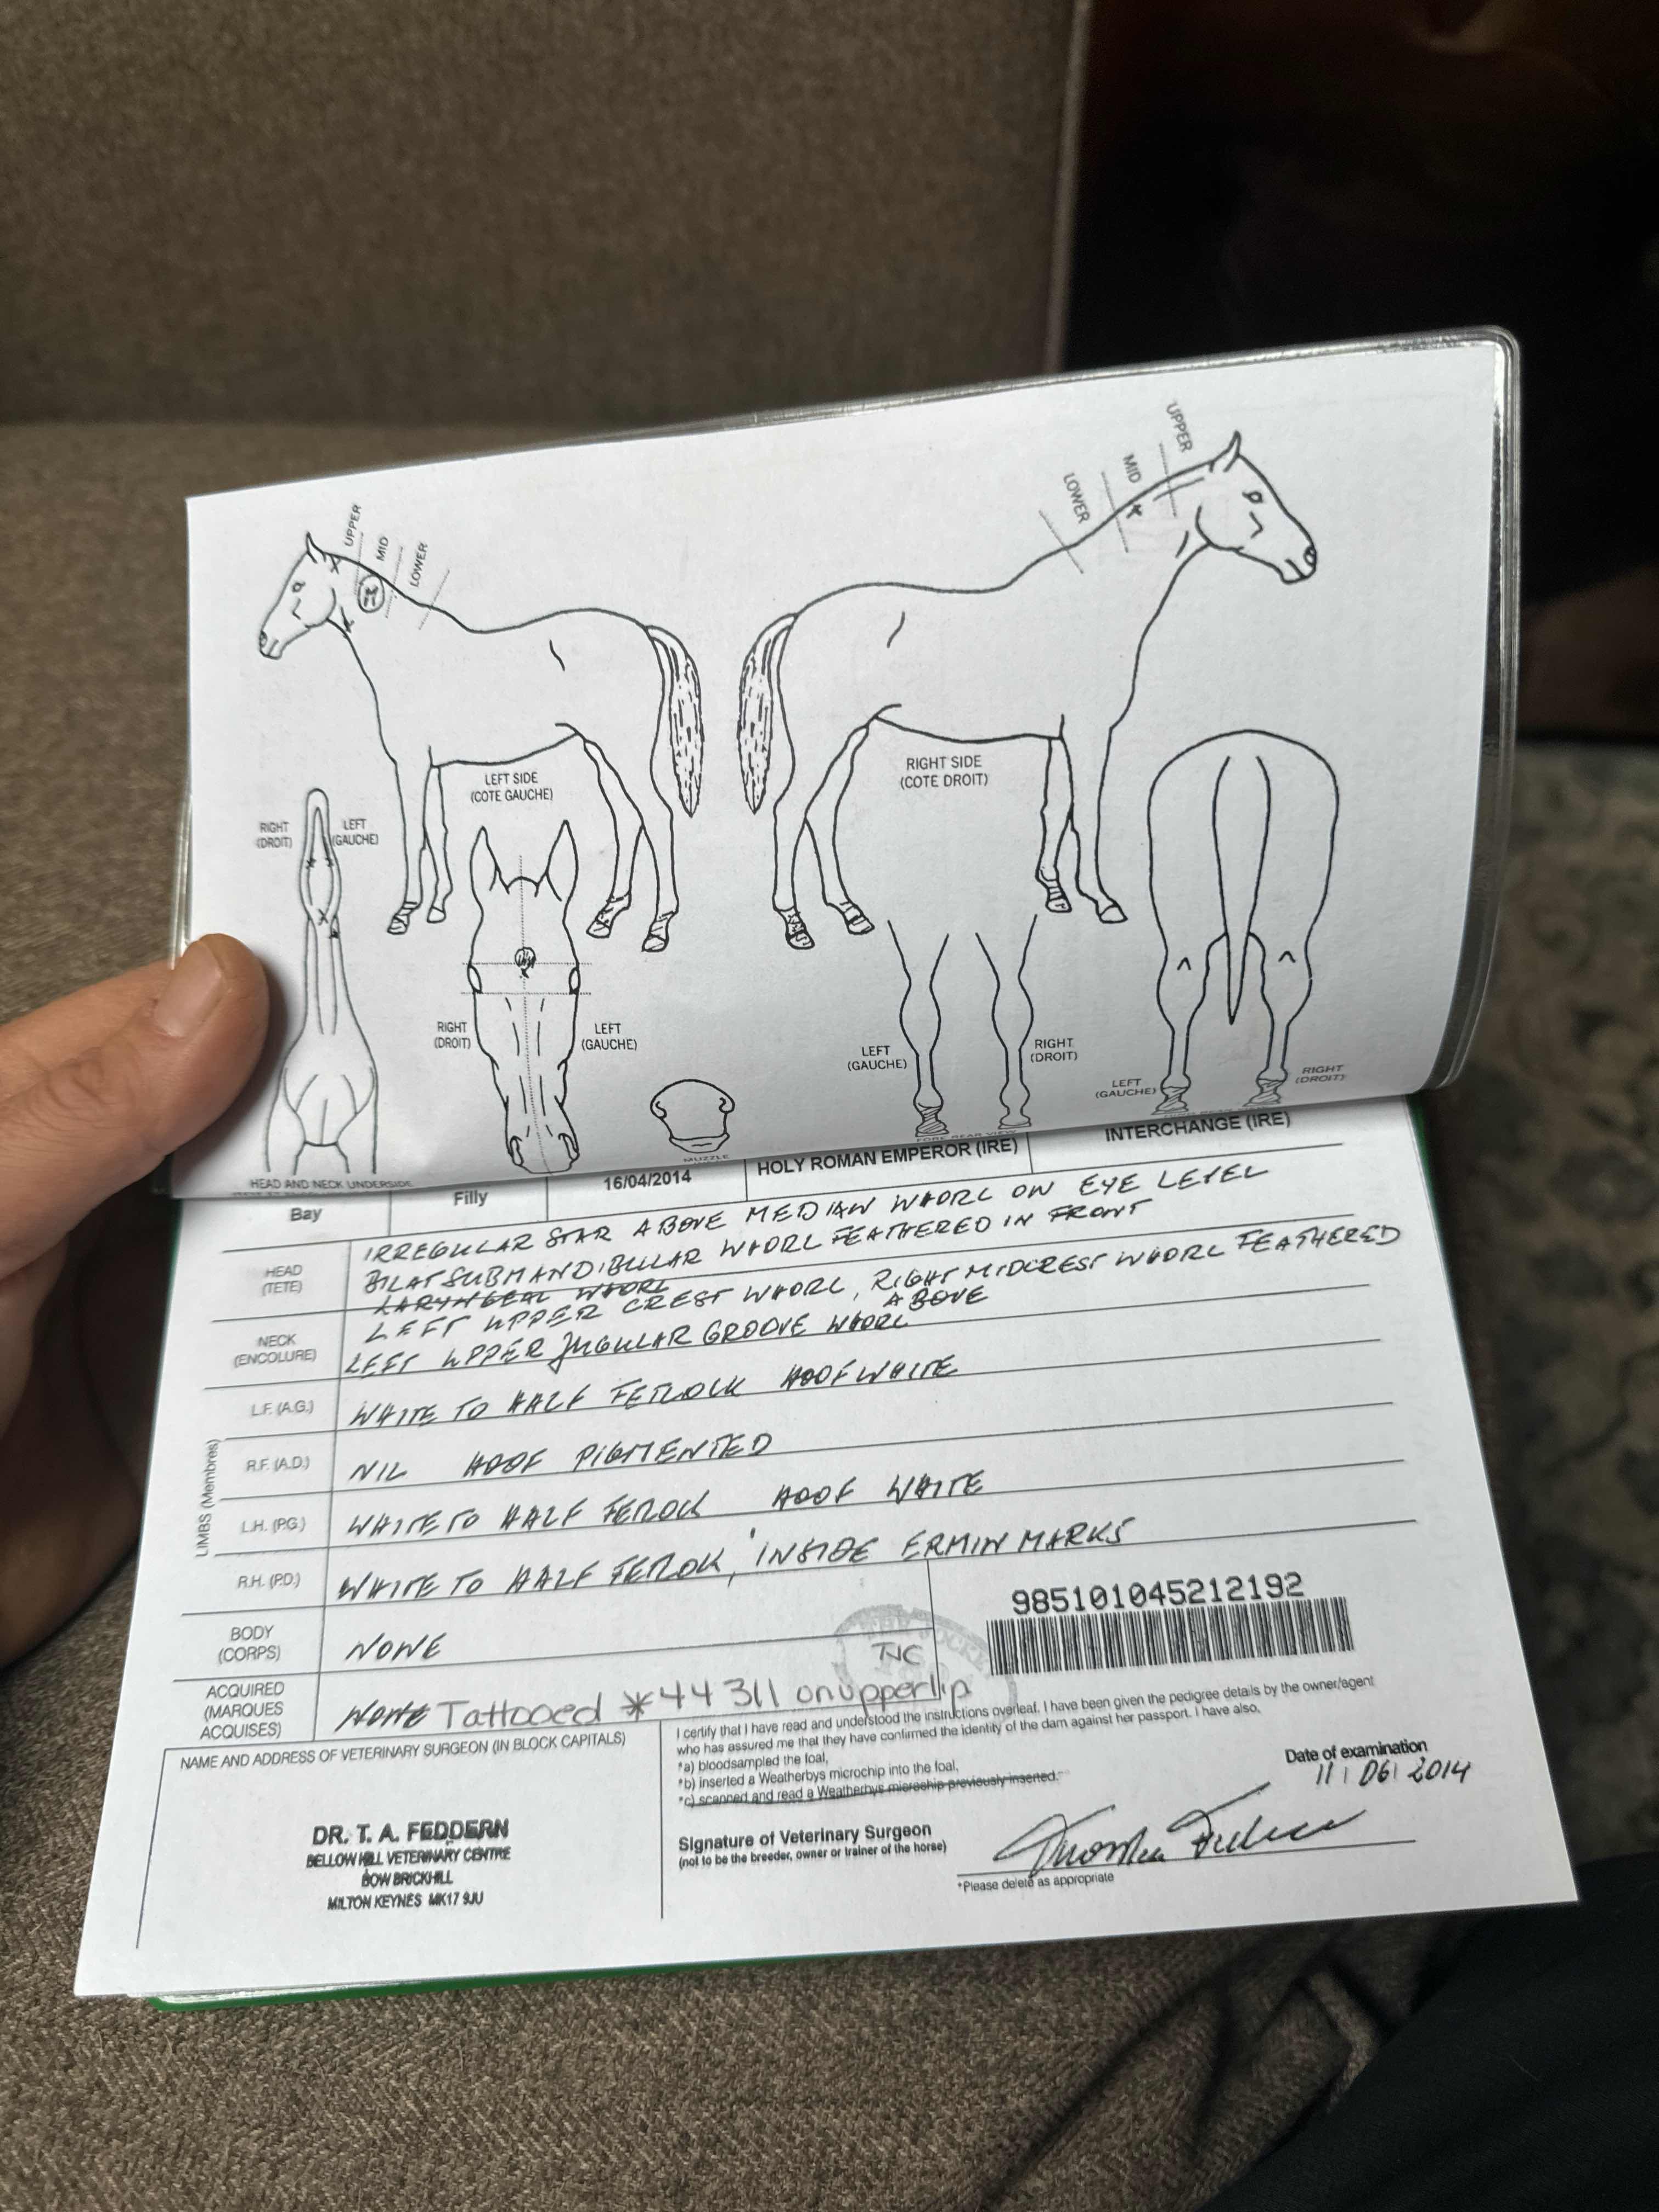 UPPER
MID
LOWER
UPPER
MID
LOWER
LEFT SIDE
(COTE GAUCHE)
RIGHT SIDE
(COTE DROIT)
RIGHT
(DROIT)
LEFT
(GAUCHE)
RIGHT
(DROIT)
LEFT
(GAUCHE)
LEFT
(GAUCHE)
RIGHT
(DROIT)
LEFT
(GAUCHE)
RIGHT
(DROIT)
HEAD AND NECK UNDERSIDE
MUZZLE
FORE REAR VIEW
Bay
Filly
16/04/2014
HOLY ROMAN EMPEROR (IRE)
INTERCHANGE (IRE)
HEAD
(TETE)
IRREGULAR STAR ABOVE MEDIAN WHORL ON EYE LEVEL
BILAT SUBMANDIBULAR WHORL FEATHERED IN FRONT
LARYNGEAL WHORL
NECK
(ENCOLURE)
LEFT UPPER CREST WHORL, RIGHT MIDCREST WHORL FEATHERED
ABOVE
LEFT UPPER JUGULAR GROOVE WHORL
LIMBS (Membres)
L.F. (A.G.)
WHITE TO HALF FETLOCK HOOF WHITE
R.F. (A.D.)
NIL HOOF PIGMENTED
L.H. (P.G.)
WHITE TO HALF FETLOCK HOOF WHITE
R.H. (P.D.)
WHITE TO HALF FETLOK, INSIDE ERMIN MARKS
BODY
(CORPS)
NONE
985101045212192
TJC
ACQUIRED
(MARQUES
ACQUISES)
NONE Tattooed *44311 on upper lip
NAME AND ADDRESS OF VETERINARY SURGEON (IN BLOCK CAPITALS)
DR. T. A. FEDDERN
BELLOW HILL VETERINARY CENTRE
BOW BRICKHILL
MILTON KEYNES MK17 9JU
I certify that I have read and understood the instructions overleaf. I have been given the pedigree details by the owner/agent
who has assured me that they have confirmed the identity of the dam against her passport. I have also,
*a) bloodsampled the foal,
*b) inserted a Weatherbys microchip into the foal,
*c) scanned and read a Weatherbys microchip previously inserted.
Date of examination
11 06 2014
Signature of Veterinary Surgeon
(not to be the breeder, owner or trainer of the horse)
*Please delete as appropriate